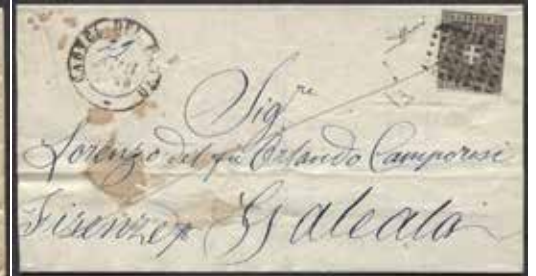 CASTEL DEL
Sig.re
Lorenzo del fu Orlando Camporesi
Firenze p Galeata